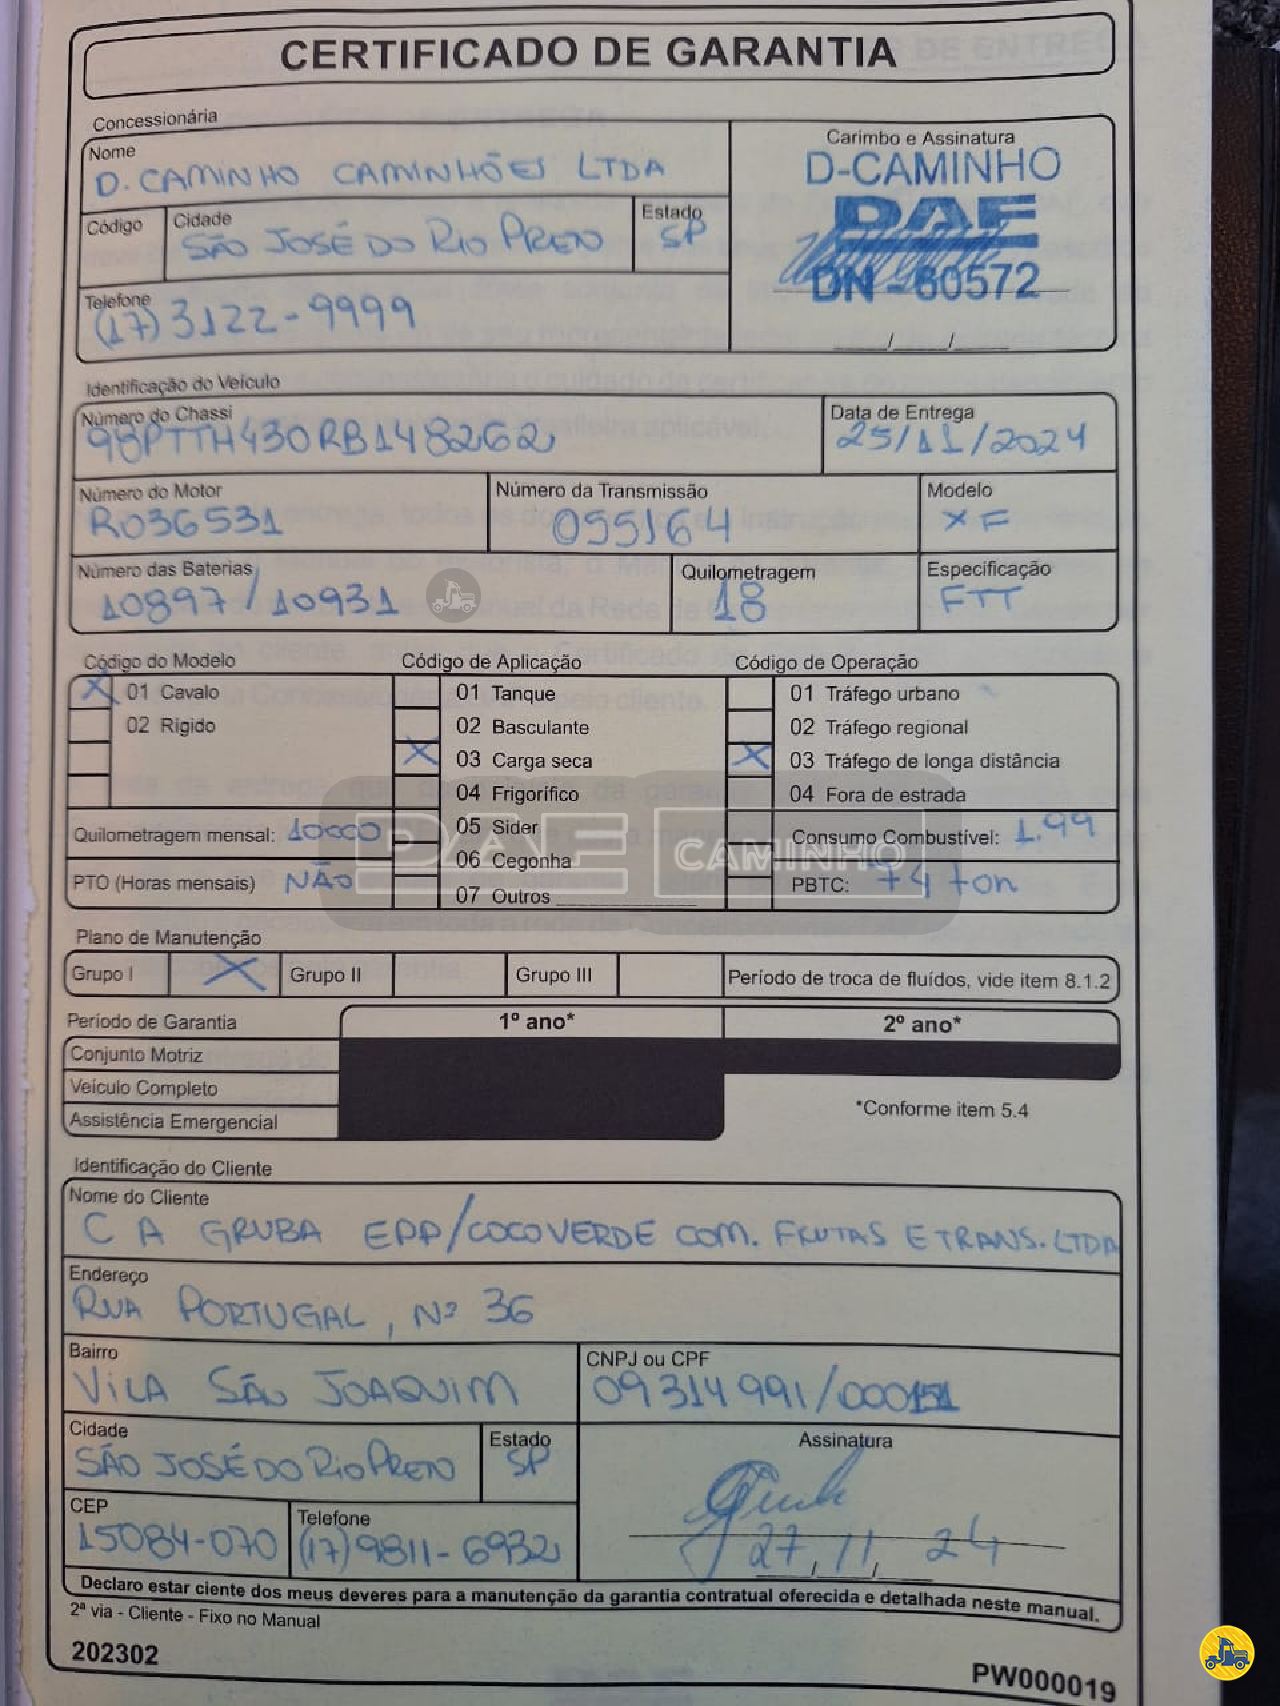 CERTIFICADO DE GARANTIA
Concessionária
Nome
D. CAMINHO CAMINHÕES LTDA
Código
Cidade
SÃO JOSÉ DO RIO PRETO
Estado
SP
Telefone
(17) 3122-9999
Carimbo e Assinatura
D-CAMINHO
DAF
DN - 60572
Identificação do Veículo
Número do Chassi
98PTTH430RB148262
Data de Entrega
25/11/2024
Número do Motor
R036531
Número da Transmissão
099164
Modelo
XF
Número das Baterias
10897/10931
Quilometragem
18
Especificação
FTT
Código do Modelo
X 01 Cavalo
02 Rígido
Quilometragem mensal: 10000
PTO (Horas mensais) NÃO
Código de Aplicação
01 Tanque
02 Basculante
X 03 Carga seca
04 Frigorífico
05 Sider
06 Cegonha
07 Outros
Código de Operação
01 Tráfego urbano
02 Tráfego regional
X 03 Tráfego de longa distância
04 Fora de estrada
Consumo Combustível: 1.99
PBTC: 74 ton
DAF CAMINHO
Plano de Manutenção
Grupo I X Grupo II Grupo III Período de troca de fluídos, vide item 8.1.2
Período de Garantia 1º ano* 2º ano*
Conjunto Motriz
Veículo Completo
Assistência Emergencial
*Conforme item 5.4
Identificação do Cliente
Nome do Cliente
C A GRUBA EPP/COCOVERDE COM. FRUTAS E TRANS. LTDA
Endereço
RUA PORTUGAL, Nº 36
Bairro
VILA SÃO JOAQUIM
CNPJ ou CPF
09314991/
Cidade
SÃO JOSÉ DO RIO PRETO
Estado
SP
Assinatura
27/11/24
CEP
15084-070
Telefone
(17)9811-6932
Declaro estar ciente dos meus deveres para a manutenção da garantia contratual oferecida e detalhada neste manual.
2ª via - Cliente - Fixo no Manual
202302
PW000019